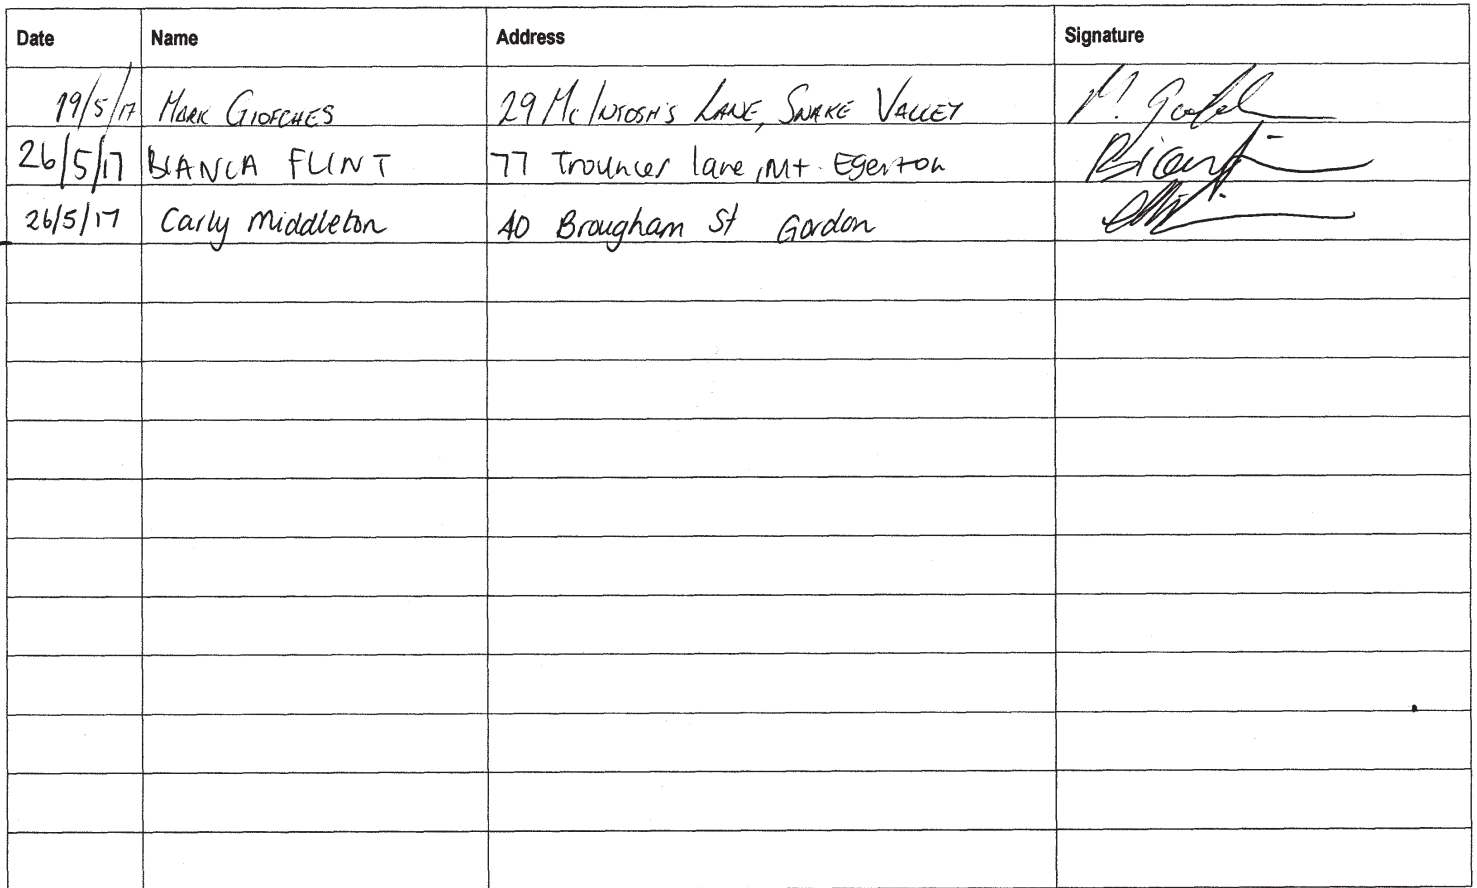 Date Name Address Signature
19/5/17 MARK GIOFCHES 29 McINTOSH'S LANE, SNAKE VALLEY
26/5/17 BIANCA FLINT 77 Trouncer lane, Mt. Egerton
26/5/17 Carly Middleton 40 Brougham St Gordon